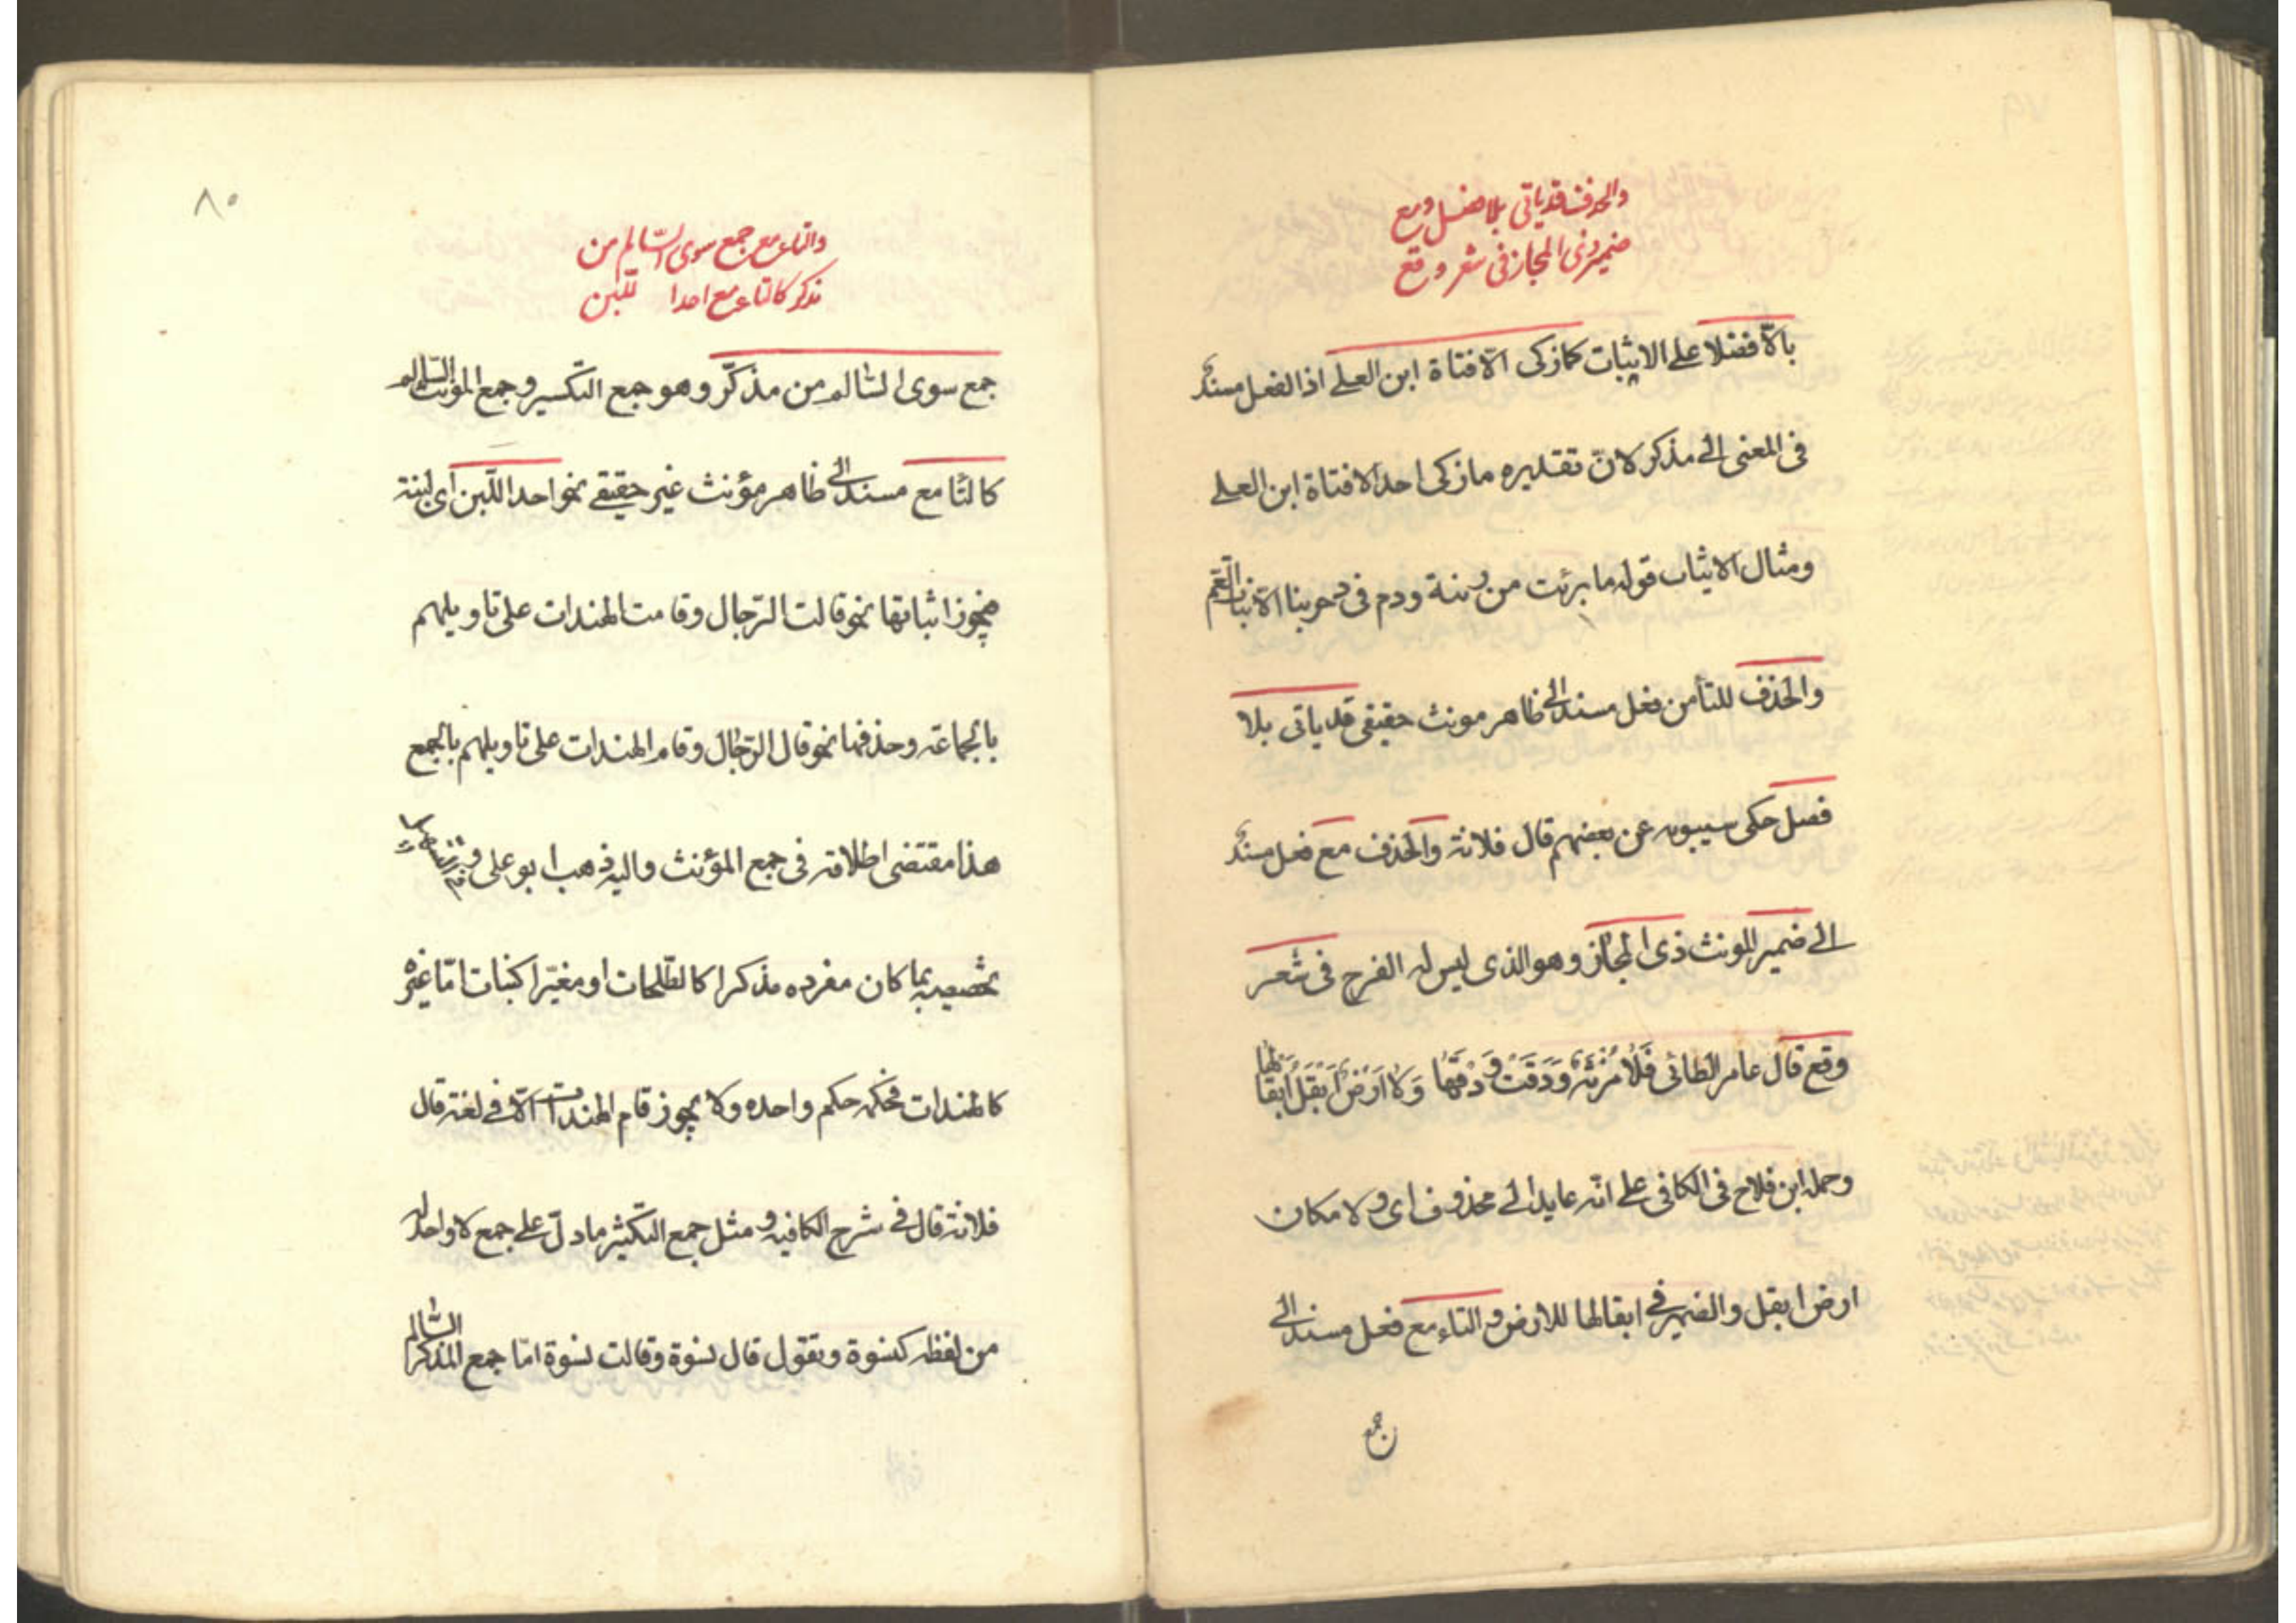 والحذف قد ياتى بلا فصل ومع
ضمير ذى المجاز فى شعر وقع
بالّا فضلا على الاثبات كما زكى الّا فتاة ابن العلى اذا الفعل مسند
فى المعنى الى مذكر لانّ تقديره ما زكى احد الا فتاة ابن العلى
ومثال الاثبات قوله ما برئت من ريبة وذم فى حربنا الّا بنات العمّ
والحذف للتأ من فعل مسند الى ظاهر مونث حقيقى قد ياتى بلا
فصل حكى سيبويه عن بعضهم قال فلانة والحذف مع فعل مسند
الى ضمير المونث ذى المجاز وهو الذى ليس له الفرج فى شعر
وقع قال عامر الطائى فَلاٰ مُزْنَةٌ وَدَقَتْ وَدْقَهٰا وَلاٰ اَرْضَ اَبْقَلَ اِبْقٰالَهٰا
وحمله ابن فلاح فى الكافى على انّه عايد الى محذوف اى ولا مكان
ارض ابقل والضمير فى ابقالها للارض والتاء مع فعل مسند الى
جمع
٨٠
والتاء مع جمع سوى السّالم من
مذكر كالتاء مع احدا للّبن
جمع سوى السّالم من مذكّر وهو جمع التكسير وجمع المونث السّالم
كالتّا مع مسند الى ظاهر مؤنث غير حقيقى نحو احدا اللّبن اى لبنة
فيجوز اثباتها نحو قالت الرّجال وقامت الهندات على تاويلهم
بالجماعة وحذفها نحو قال الرّجال وقام الهندات على تاويلهم بالجمع
هذا مقتضى اطلاقه فى جمع المؤنث واليه ذهب ابو على و
تخصيصه بما كان مفرده مذكرا كالطّلحات او مغيّرا كبنات امّا غيره
كالهندات فحكمه حكم واحده ولا يجوز قام الهندات الّا فى لغة قال
فلانة قال فى شرح الكافيه و مثل جمع التكثير ما دلّ على جمع لا واحد له
من لفظه كنسوة وتقول قال نسوة وقالت نسوة امّا جمع المذكر السّالم